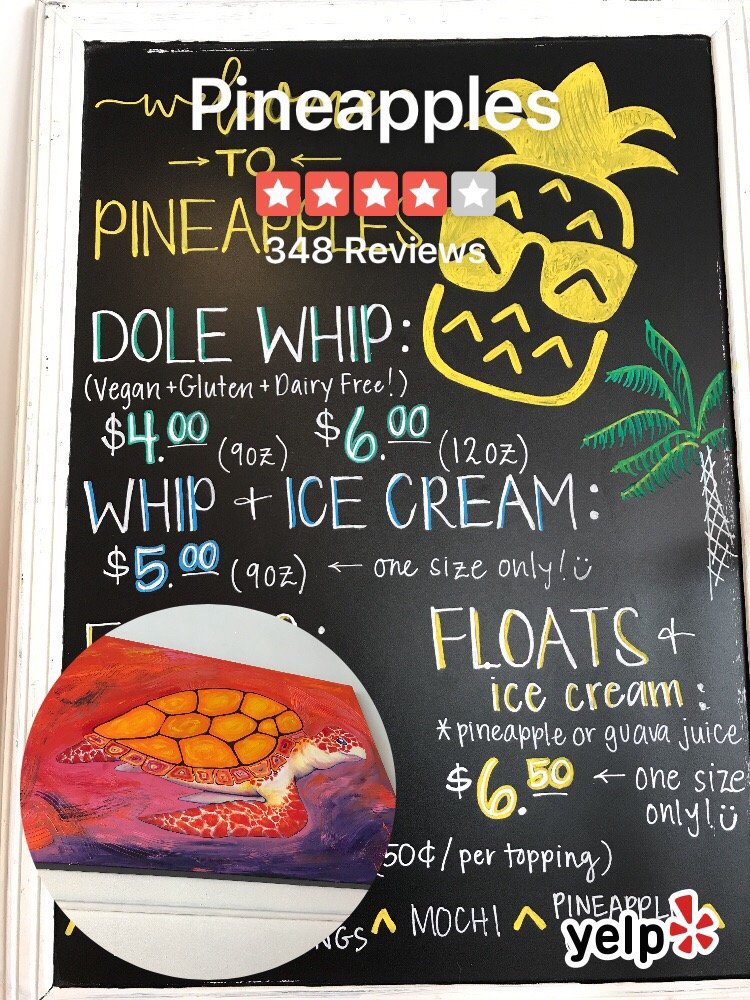 welcome
Pineapples
→TO←
PINEAPPLES
348 Reviews
DOLE WHIP:
(Vegan+Gluten+Dairy Free!)
$4.00 (9oz) $6.00 (12oz)
WHIP + ICE CREAM:
$5.00 (9oz) ← one size only!
FLOATS +
ice cream:
*pineapple or guava juice
$6.50 ← one size
only!
50¢/per topping)
NGS ^ MOCHI ^ PINEAPPLE
yelp